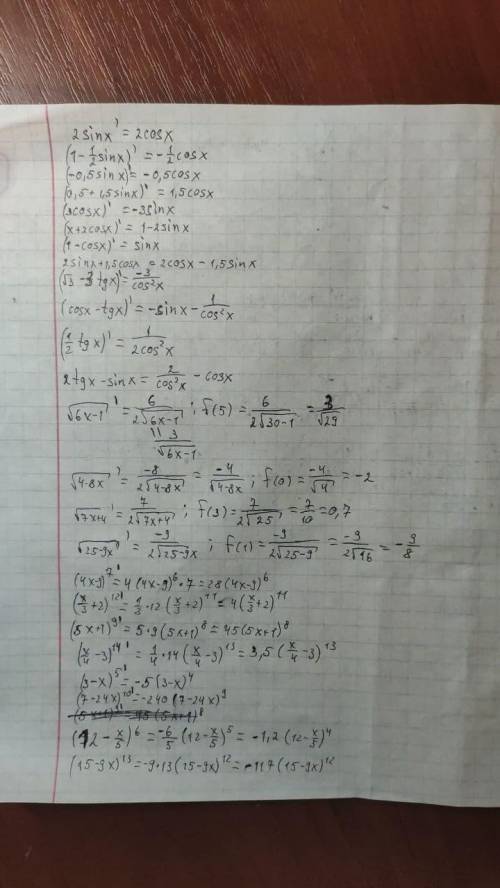 2sinx' = 2cosx
(1 - 1/2 sinx)' = -1/2 cosx
(-0,5 sinx)' = -0,5cosx
(0,5 + 1,5 sinx)' = 1,5cosx
(3cosx)' = -3sinx
(x+2cosx)' = 1-2sinx
(1-cosx)' = sinx
2sinx+1,5cosx = 2cosx - 1,5sinx
(√3 - 3 tgx)' = -3/cos²x
(cosx - tgx)' = -sinx - 1/cos²x
(1/2 tgx)' = 1/2cos²x
2tgx - sinx = 2/cos²x - cosx
√6x-1' = 6/2√6x-1 ; f(5) = 6/2√30-1 = 3/√29
= 3/√6x-1
√4-8x' = -8/2√4-8x = -4/√4-8x ; f(0) = -4/√4 = -2
√7x+4' = 7/2√7x+4 ; f(3) = 7/2√25 = 7/10 = 0,7
√25-9x' = -9/2√25-9x ; f(1) = -9/2√25-9 = -9/2√16 = -9/8
(4x-9)⁷' = 4(4x-9)⁶·7 = 28(4x-9)⁶
(x/3+2)¹²' = 1/3·12(x/3+2)¹¹ = 4(x/3+2)¹¹
(5x+1)⁹' = 5·9(5x+1)⁸ = 45(5x+1)⁸
(x/4-3)¹⁴' = 1/4·14(x/4-3)¹³ = 3,5(x/4-3)¹³
(3-x)⁵' = -5(3-x)⁴
(7-24x)¹⁰' = -240(7-24x)⁹
(12-x/5)⁶ = -6/5(12-x/5)⁵ = -1,2(12-x/5)⁴
(15-9x)¹³ = -9·13(15-9x)¹² = -117(15-9x)¹²